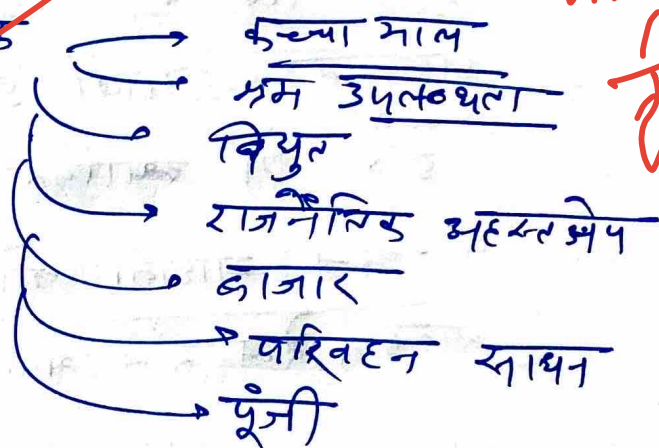 कच्चा माल
श्रम उपलब्धता
विद्युत
राजनैतिक अहस्तक्षेप
बाजार
परिवहन साधन
पूंजी